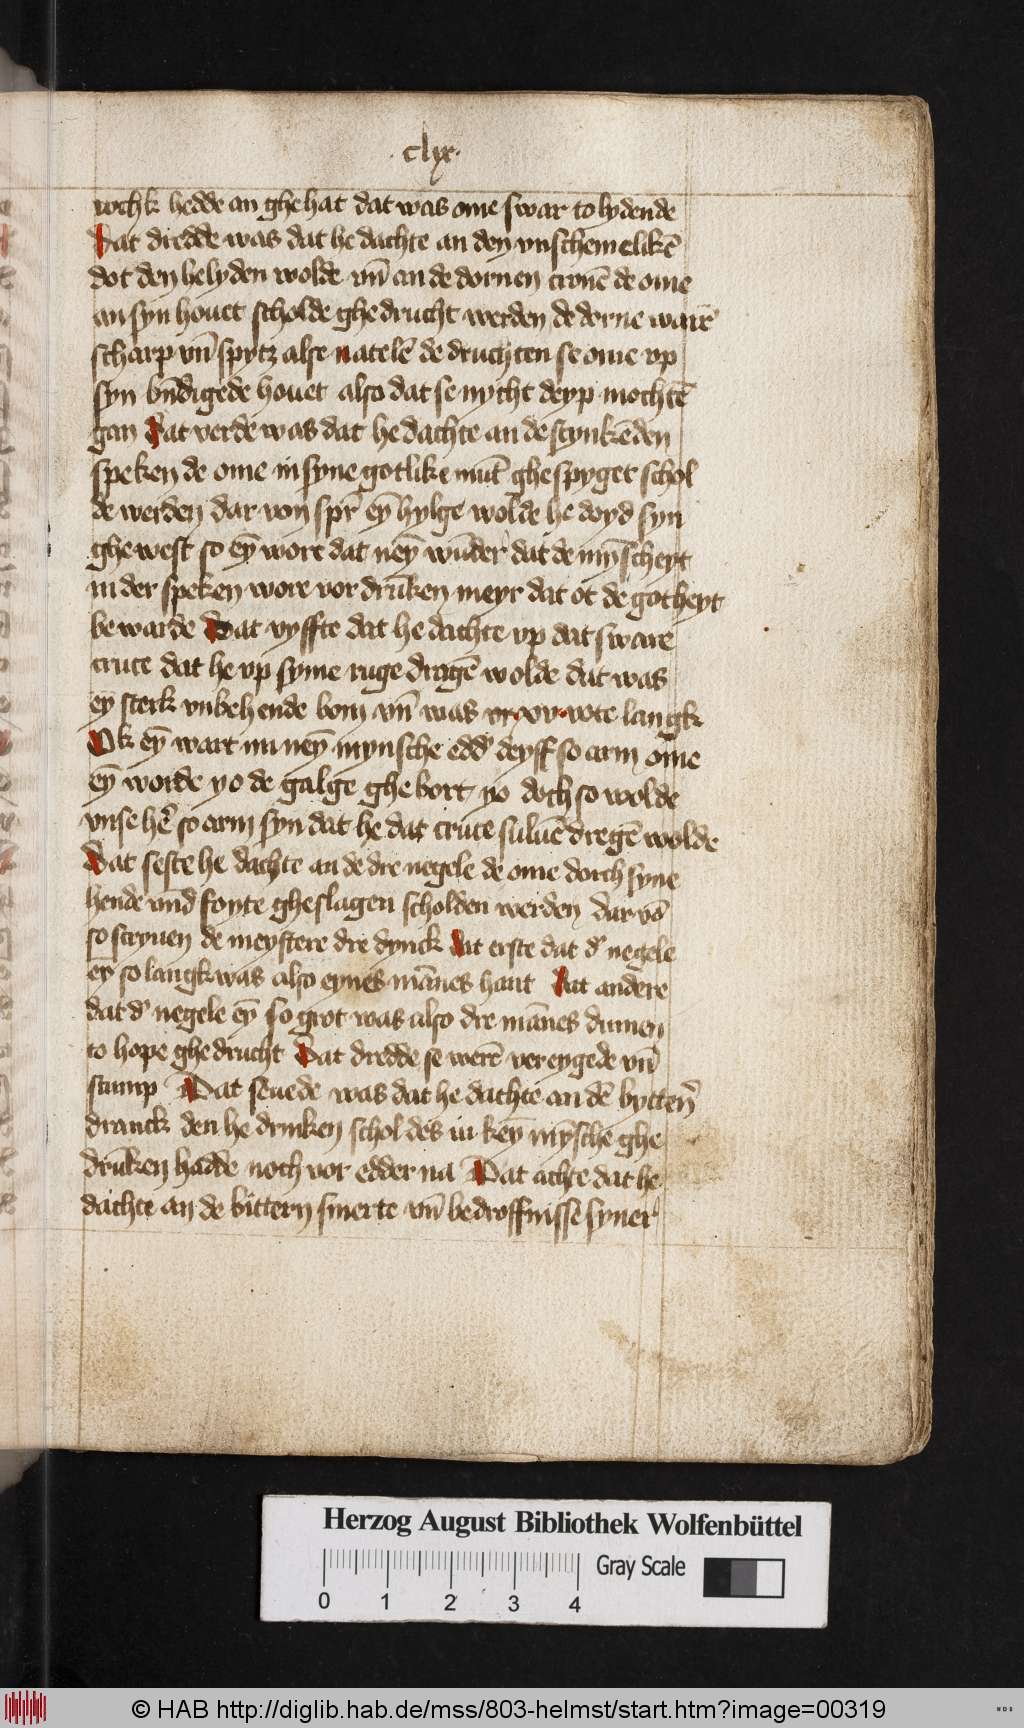 clix
wchk hedde an ghehat dat was ome swar to lydende
Dat dredde was dat he dachte an den vnschemelikē
dot den he lyden wolde vn̄ an de dornen cronē de ome
an syn houet scholde ghedrucht werden de dorne warē
scharp vn̄ spytz alse natelē de druchten se ome vp
syn bn̄digede houet also dat se nycht deyp mochtē
gan Dat verde was dat he dachte an de stynkēden
speken de ome in syne gotlike mūt ghespyget schol
de werden dar von spr̄ eȳ hylge wolde he doyd syn
ghewest so eȳ wore dat neȳ wūder dat de mȳscheyt
in der speken wore vor drūken meyr dat ot de gotheyt
bewarde Dat vyffte dat he dachte vp dat sware
cruce dat he vp syme ruge dragē wolde dat was
eȳ sterk vnbehende bom vn̄ was xv vote langk
Ok eȳ wart nu neȳ mynsche edd' deyff so arm ome
eȳ worde yo de galge ghebort yo doch so wolde
vnse hē so arm syn dat he dat cruce suluē dregē wolde
Dat seste he dachte an de dre negele de ome dorch syne
hende vnd foyte gheslagen scholden werden dar vō
so scryuen de meystere dre dynck dat erste dat d' negele
eȳ so langk was also eynes mānes hant Dat andere
dat d' negele eȳ so grot was also dre mānes dumen
to hope ghedrucht Dat dredde se werē vereygede vn̄
stump Dat seuede was dat he dachte an dē bytten̄
dranck den he drinken scholdes iu keȳ mȳsche ghe
drūken hadde noch vor edder na Dat achte dat he
dachte an de bittern smerte vn̄ bedroffnisse syner
Herzog August Bibliothek Wolfenbüttel
Gray Scale
0 1 2 3 4
© HAB http://diglib.hab.de/mss/803-helmst/start.htm?image=00319